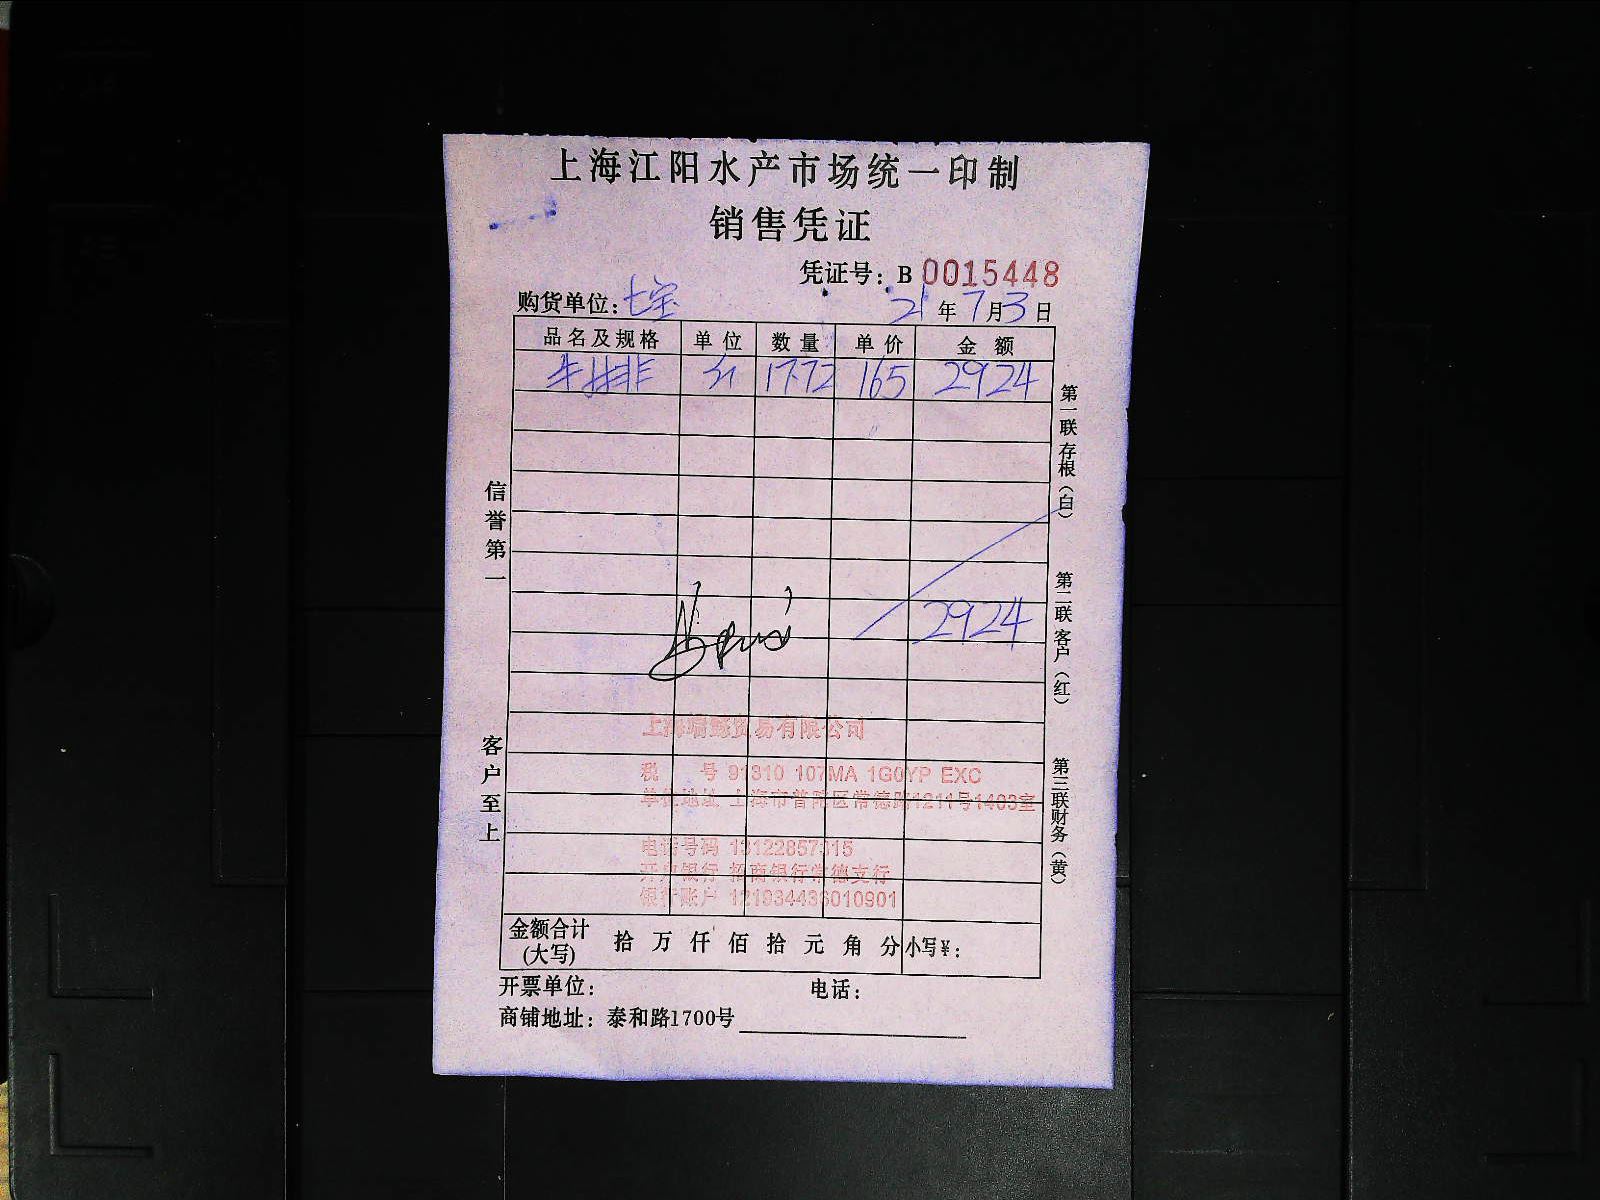 上海江阳水产市场统一印制
销售凭证
凭证号：B 0015448
购货单位：七宝 21年7月3日
品名及规格 单位 数量 单价 金额
牛排 斤 17.72 165 2924
2924
信誉第一
客户至上
第一联存根（白）
第二联客户（红）
第三联财务（黄）
税 号 91310 107MA 1G0YP EXC
单位地址 上海市普陀区常德路1211号1403室
电话号码 13122857315
开户银行 招商银行常德支行
银行账户 121934436010901
金额合计(大写) 拾 万 仟 佰 拾 元 角 分 小写¥：
开票单位： 电话：
商铺地址：泰和路1700号